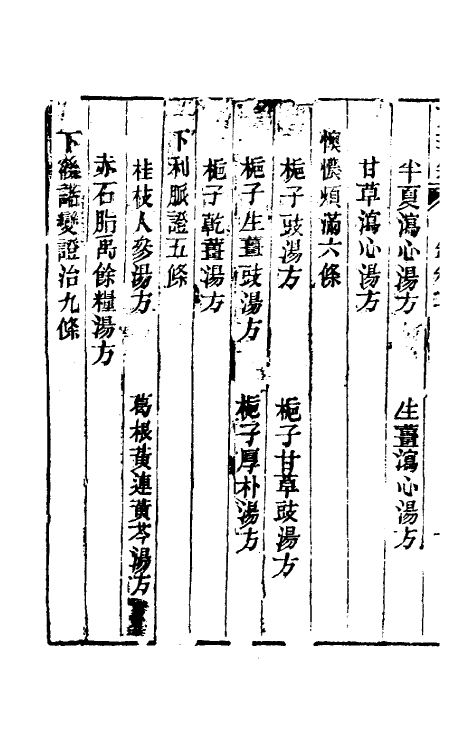 半夏瀉心湯方　生薑瀉心湯方
甘草瀉心湯方
懊憹煩滿六條
梔子豉湯方　梔子甘草豉湯方
梔子生薑豉湯方　梔子厚朴湯方
梔子乾薑湯方
下利脈證五條
桂枝人參湯方　葛根黃連黃芩湯方
赤石脂禹餘糧湯方
下後諸變證治九條